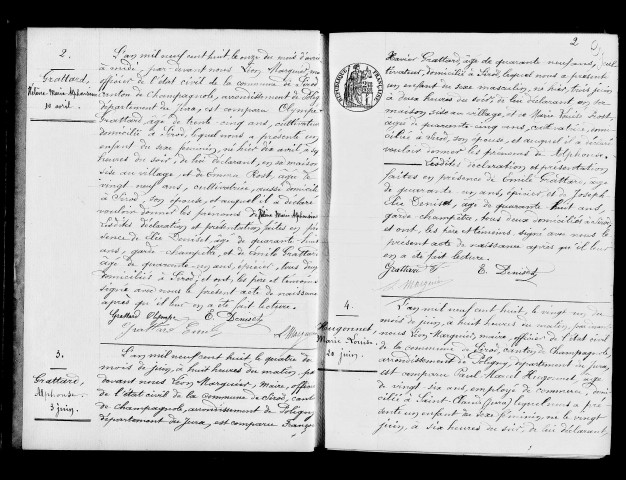 2.
Grattard,
Hélène Marie Alphonsine
10 avril.
L'an mil neuf cent huit le onze du mois d'avril
à midi par devant nous Léon Marquier, maire
officier de l'état civil de la commune de Sirod
canton de Champagnole, arrondissement de Poligny
département du Jura, est comparu Olympe
Grattard, âgé de trente cinq ans, cultivateur
domicilié à Sirod, lequel nous a présenté un
enfant du sexe féminin, né hier dix avril à
heures du soir, de lui déclarant, en sa maison
sise au village, et de Emma Rost, âgée de
vingt neuf ans, cultivatrice, aussi domiciliée
à Sirod, son épouse, et auquel il a déclaré
vouloir donner les prénoms de Hélène Marie Alphonsine
Lesdites déclaration et présentation faites en pré-
sence de Elie Deniset, âgé de quarante huit
ans, garde champêtre, et de Emile Grattard
âgé de quarante un ans, épicier, tous deux
domiciliés à Sirod, et ont, les père et témoins
signé avec nous le présent acte de naissance
après qu'il leur en a été fait lecture.
Grattard Olympe E. Deniset
Grattard Emile L. Marquier
3.
Grattard,
Alphonse.
3 juin.
L'an mil neuf cent huit, le quatre du
mois de juin, à huit heures du matin, par
devant nous Léon Marquier, Maire, officier
de l'état civil de la commune de Sirod, canton
de Champagnole, arrondissement de Poligny
département du Jura, est comparu François
2
RÉPUBLIQUE FRANÇAISE
Xavier Grattard, âgé de quarante neuf ans, cul-
tivateur, domicilié à Sirod, lequel nous a présenté
un enfant du sexe masculin, né hier, trois juin
à deux heures du soir, de lui déclarant en sa
maison, sise au village, et de Marie Rost,
âgée de quarante cinq ans, cultivatrice, domi-
ciliée à Sirod, son épouse, et auquel il a déclaré
vouloir donner les prénoms de Alphonse.
Lesdites déclaration et présentation
faites en présence de Emile Grattard, âgé
de quarante un ans, épicier, et de Joseph
Elie Deniset, âgé de quarante huit ans,
garde champêtre, tous deux domiciliés à Sirod
et ont, les père et témoins, signé avec nous le
présent acte de naissance après qu'il leur
en a été fait lecture.
Grattard E. Deniset
L. Marquier
4.
Hugonnet,
Marie Louise.
20 juin.
L'an mil neuf cent huit, le vingt un du
mois de juin, à huit heures du matin, par devant
nous Léon Marquier, maire, officier de l'état civil
de la commune de Sirod, canton de Champagnole,
arrondissement de Poligny, département du Jura,
est comparu Paul Marcel Hugonnet, âgé
de vingt six ans, employé de commerce, domi-
cilié à Saint-Claude (Jura) lequel nous a pré-
senté un enfant du sexe féminin, né le vingt
juin, à six heures du soir, de lui déclarant,